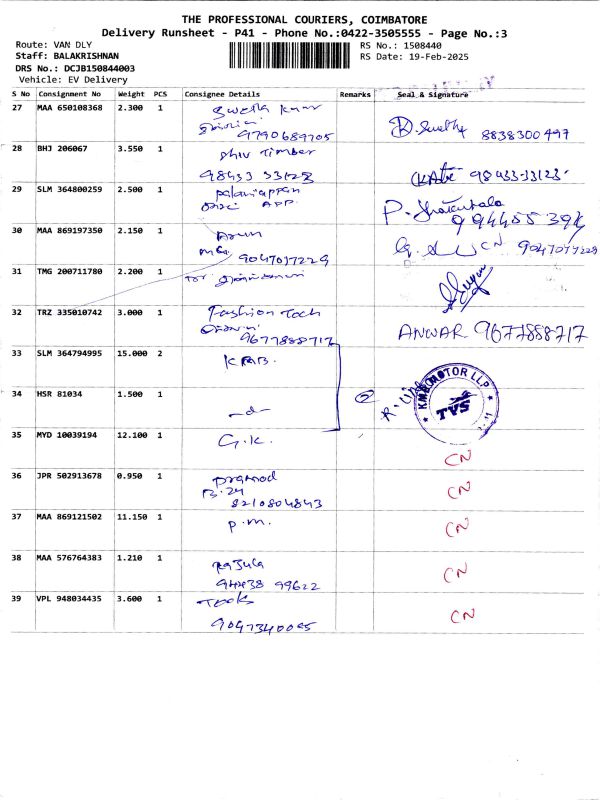 THE PROFESSIONAL COURIERS, COIMBATORE
Delivery Runsheet - P41 - Phone No.:0422-3505555 - Page No.:3
Route: VAN DLY
RS No.: 1508440
Staff: BALAKRISHNAN
RS Date: 19-Feb-2025
DRS No.: DCJB150844003
Vehicle: EV Delivery
S No Consignment No Weight PCS Consignee Details Remarks Seal & Signature
27 MAA 650108368 2.300 1 Swetha Kumar
9790689705 Swetha 8838300497
28 BHJ 206067 3.550 1 Shiv Timber
98433 33123 98433-33123
29 SLM 364800259 2.500 1 Palaniappan
APP P.
30 MAA 869197350 2.150 1 Arun
9047077229 CN 9047077229
31 TMG 200711780 2.200 1
32 TRZ 335010742 3.000 1 Fashion Tech
9677888717 ANWAR 9677888717
33 SLM 364794995 15.000 2 KMB.
34 HSR 81034 1.500 1 -d- 2 KMB MOTOR LLP
TVS
35 MYD 10039194 12.100 1 G.K. CN
36 JPR 502913678 0.950 1 Pramod CN
B.24
8210804843
37 MAA 869121502 11.150 1 P.M. CN
38 MAA 576764383 1.210 1 CN
94438 99622
39 VPL 948034435 3.600 1 Tools CN